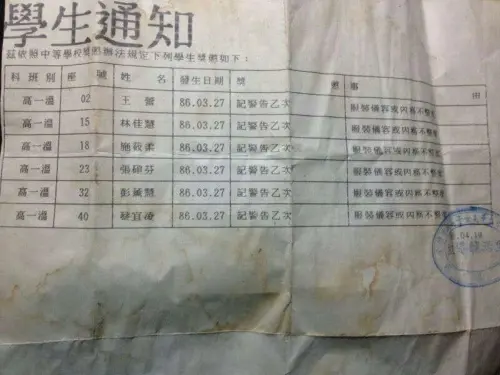 學生通知
茲依照中等學校獎懲辦法規定下列學生獎懲如下：
科班別 座號 姓名 發生日期 獎懲 事由
高一溫 02 王營 86.03.27 記警告乙次 服裝儀容或內務不整潔
高一溫 15 林佳慧 86.03.27 記警告乙次 服裝儀容或內務不整潔
高一溫 18 施筱柔 86.03.27 記警告乙次 服裝儀容或內務不整潔
高一溫 23 張 芬 86.03.27 記警告乙次 服裝儀容或內務不整潔
高一溫 32 彭 慧 86.03.27 記警告乙次 服裝儀容或內務不整潔
高一溫 40 宜 86.03.27 記警告乙次 服裝儀容或內務不整潔
.04.18